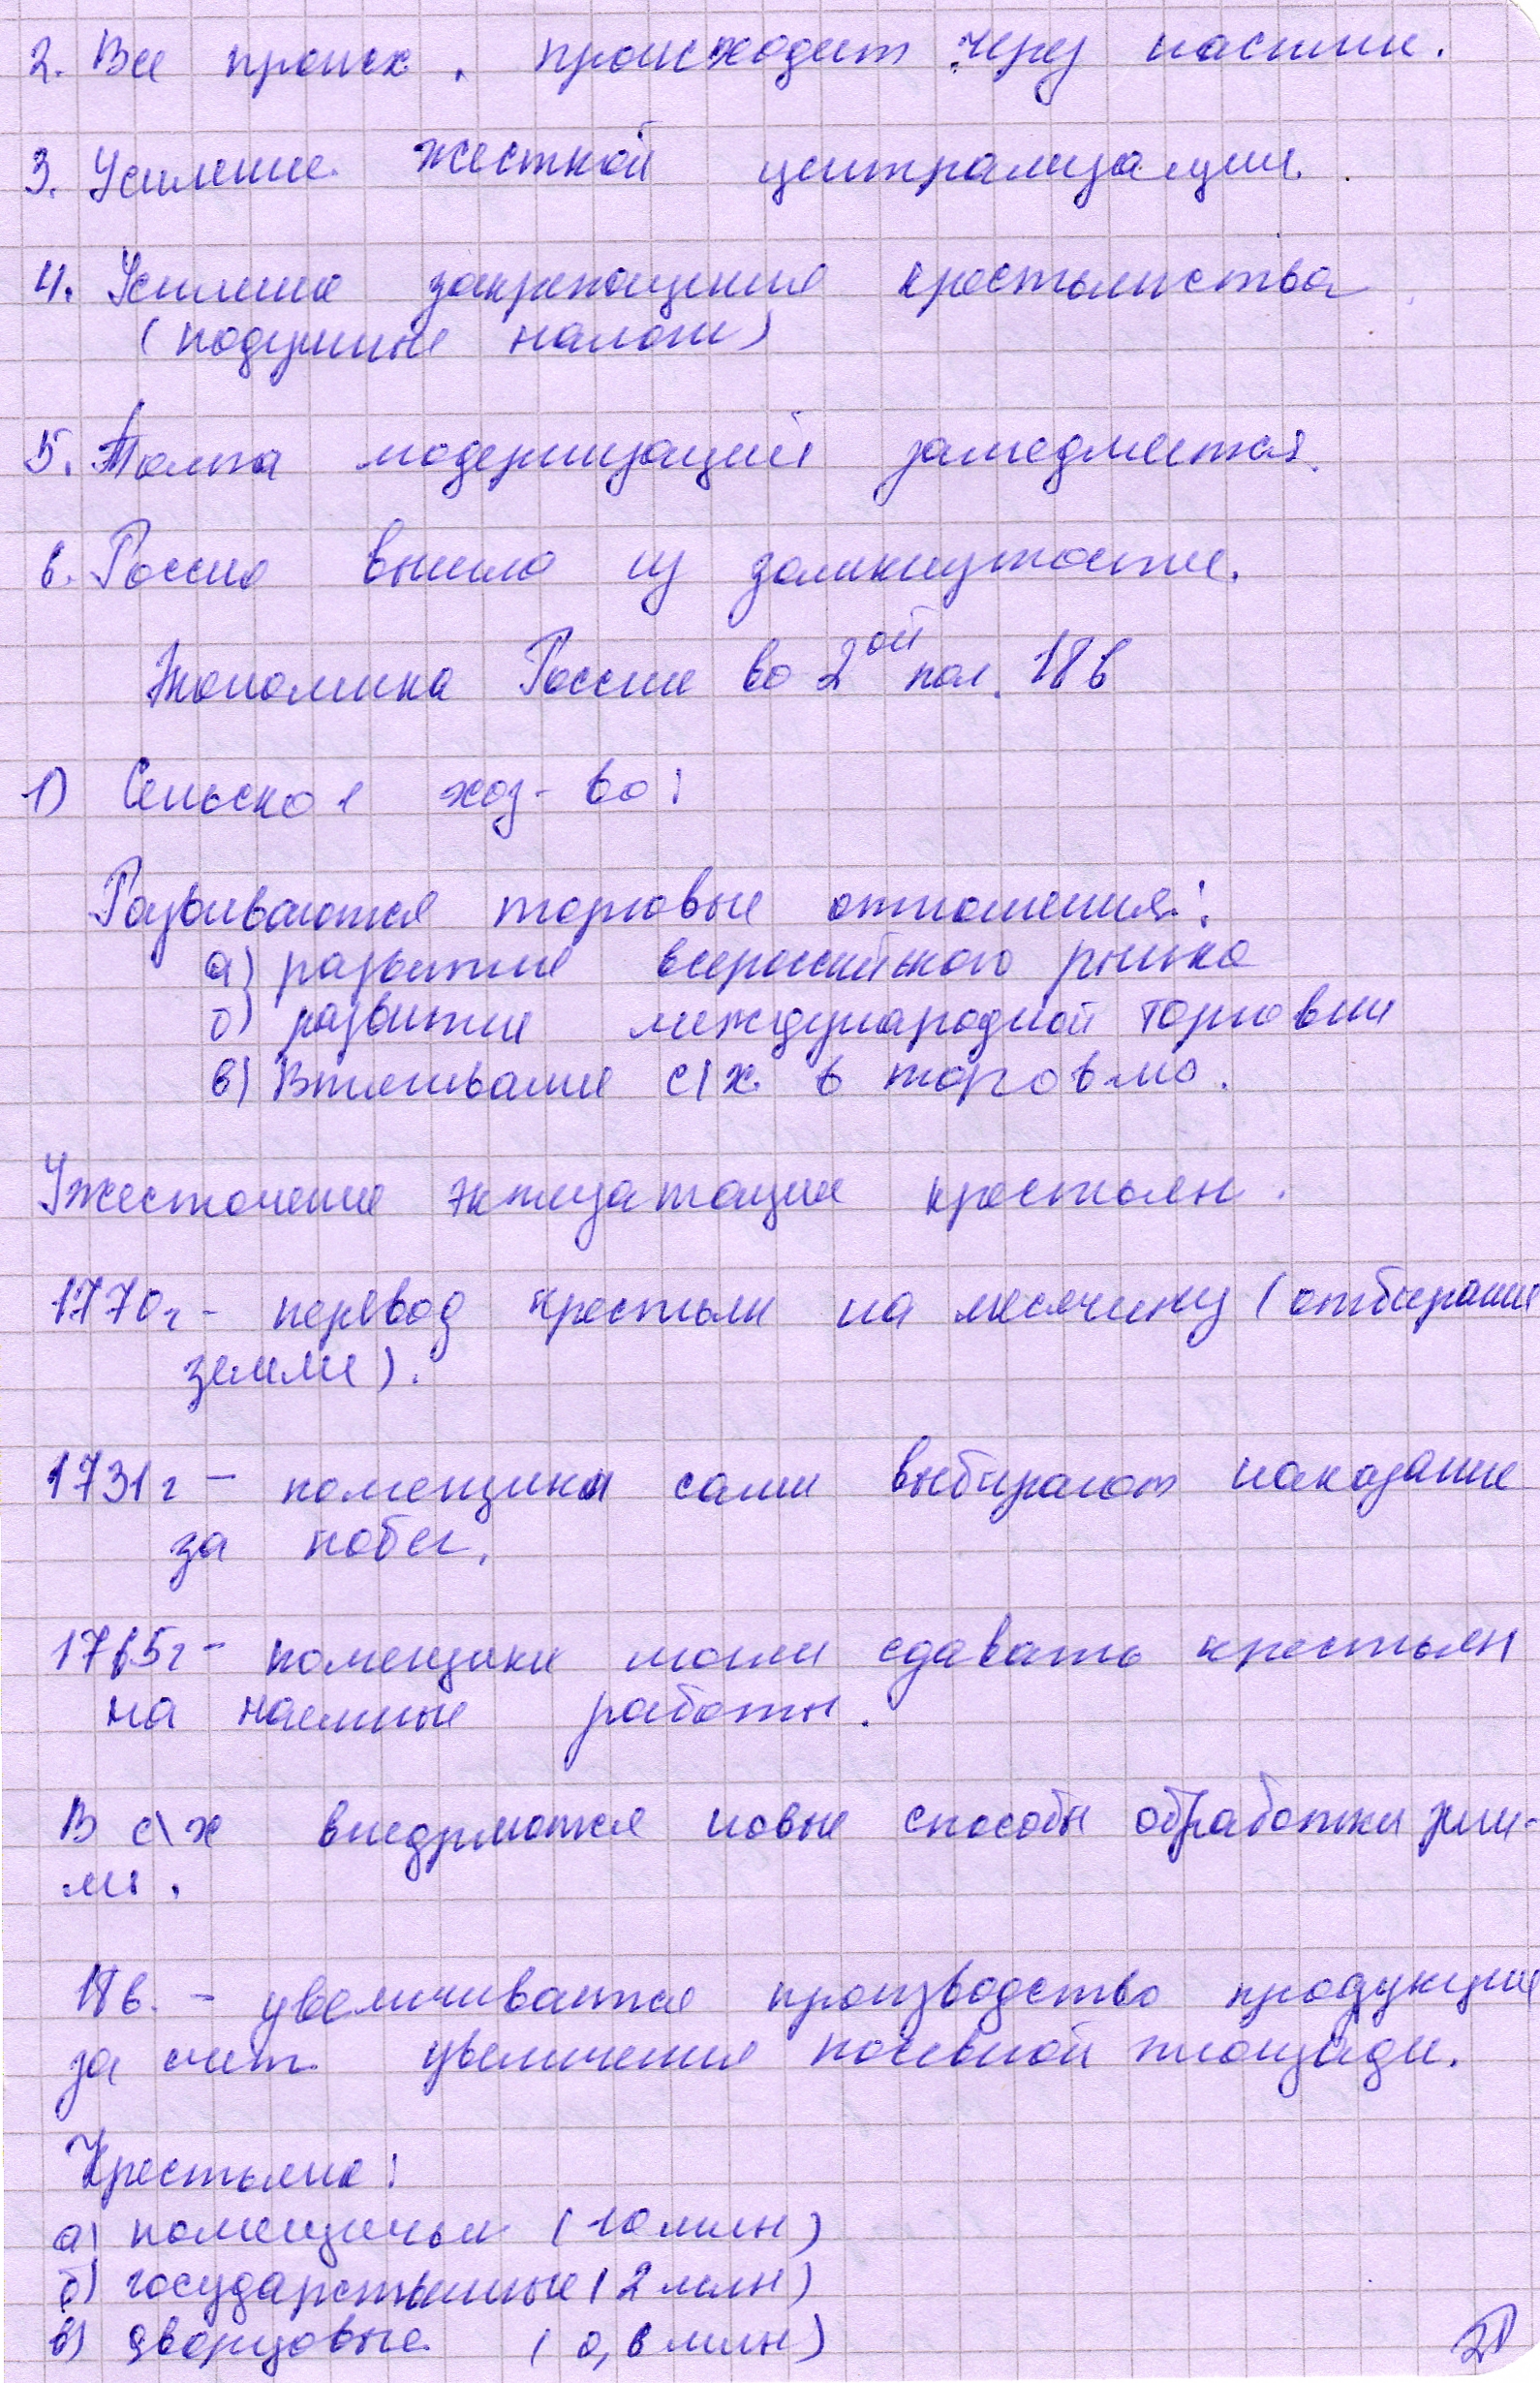 2. Все происх. происходит через насилие.
3. Усиление жесткой централизации.
4. Усиление закрепощения крестьянства
(подушные налоги)
5. модернизаций замедляется.
6. Россия вышла из замкнутости.
Экономика России во 2ой пол. 18 в
1) Сельское хоз-во:
Развиваются торговые отношения:
а) развитие всероссийского рынка
б) развитие международной торговли
в) Втягивание с/х. в торговлю.
Ужесточение эксплуатации крестьян.
1770г - перевод крестьян на месячину (отбирание
земли).
1731г - помещики сами выбирают наказание
за побег.
1765г - помещики могли сдавать крестьян
на наемные работы.
В с\х внедряются новые способы обработки зем-
ли.
18в. - увеличивается производство продукции
за счет увеличения посевной площади.
Крестьяне:
а) помещичьи (10 млн)
б) государственные (2 млн)
в) дворцовые (0,6 млн)